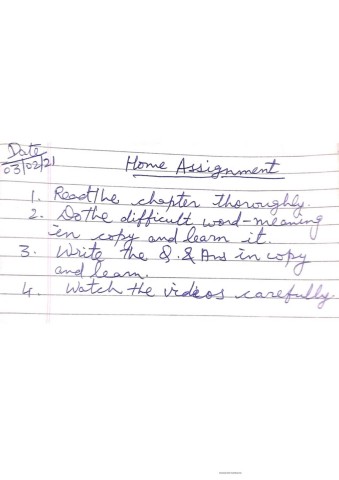 Date
03/02/21
Home Assignment
1. Read the chapter thoroughly.
2. Do the difficult word-meaning
in copy and learn it.
3. Write the Q. & Ans in copy
and learn.
4. Watch the videos carefully